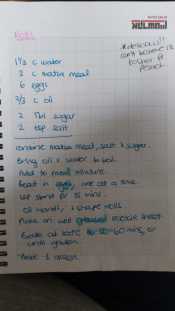 ROLLS
1½ c water
2 c matza meal
6 eggs
⅔ c oil
2 Tbl sugar
2 tsp salt
combine matza meal, salt & sugar.
Bring oil & water to boil.
Add to meal mixture.
Beat in eggs, one at a time.
Let stand for 15 mins.
Oil hands, & shape rolls.
Place on well greased cookie sheet.
Bake at 50-60 mins, or
until golden.
Makes 1 dozen.